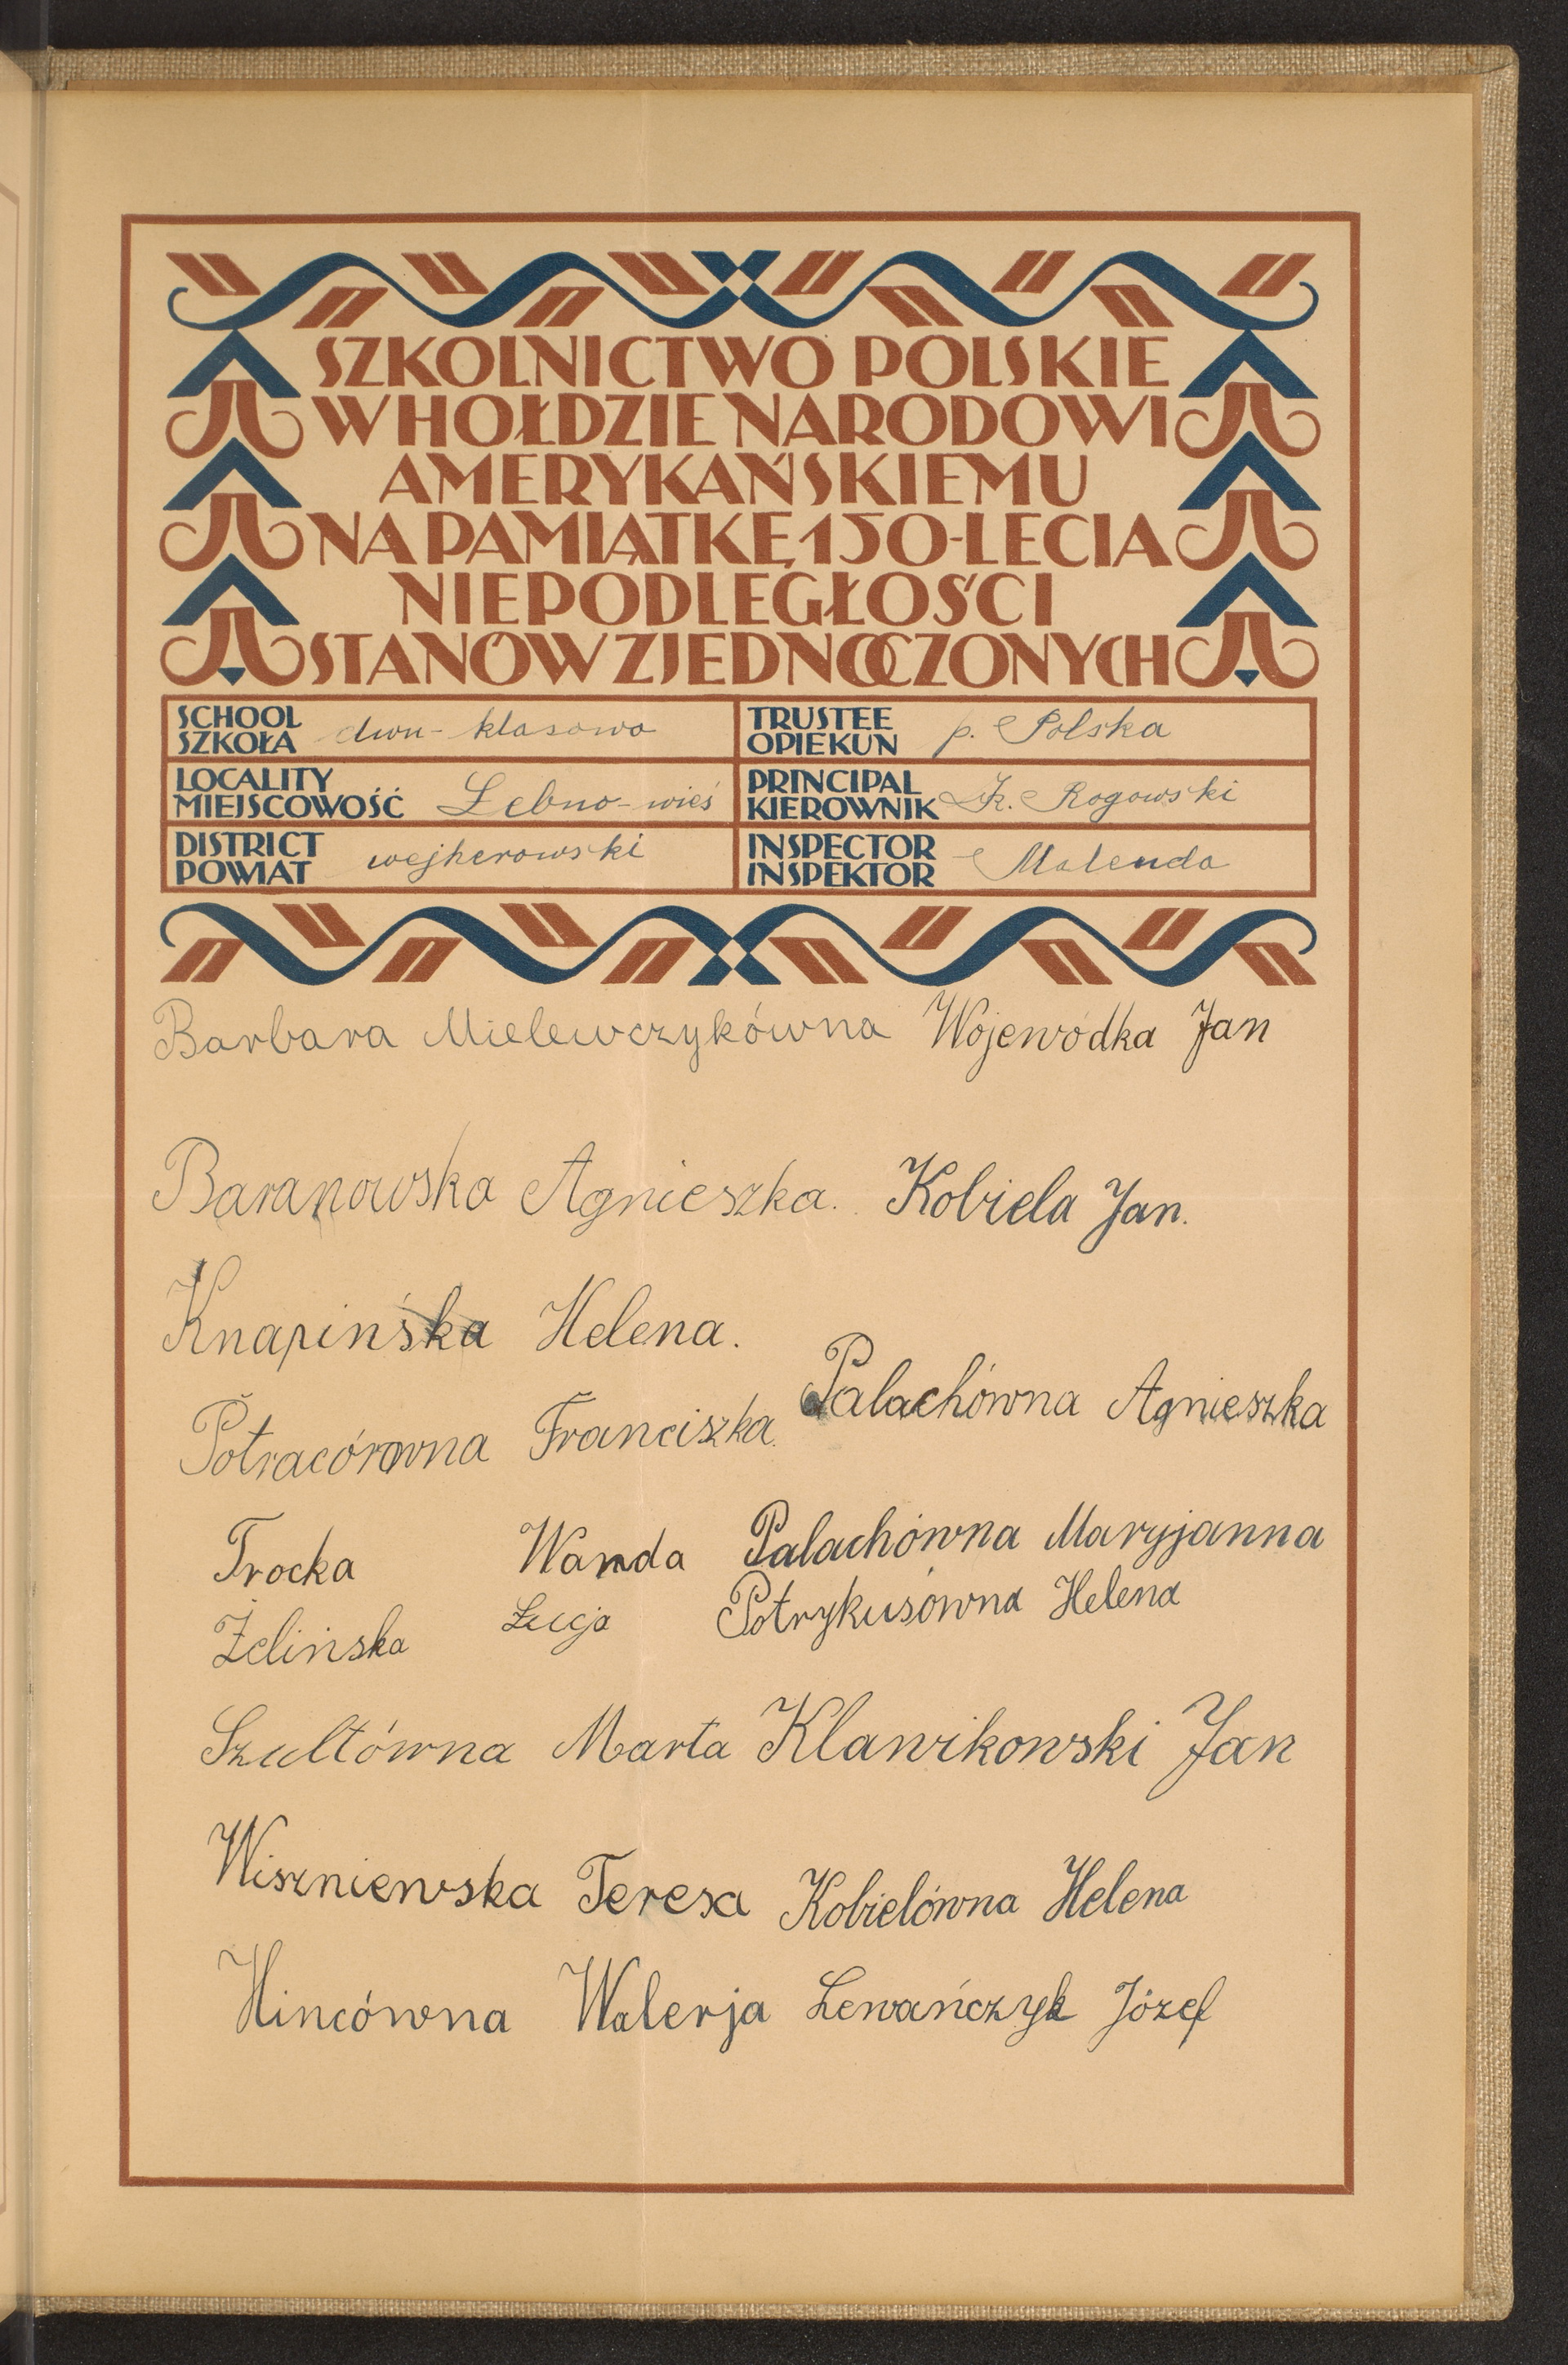 SZKOLNICTWO POLSKIE
W HOŁDZIE NARODOWI
AMERYKAŃSKIEMU
NA PAMIĄTKĘ 150-LECIA
NIEPODLEGŁOŚCI
STANÓW ZJEDNOCZONYCH
SCHOOL
SZKOŁA dwu-klasowa
TRUSTEE
OPIEKUN p. Polska
LOCALITY
MIEJSCOWOŚĆ Łebno-wieś
PRINCIPAL
KIEROWNIK Fr. Rogowski
DISTRICT
POWIAT wejherowski
INSPECTOR
INSPEKTOR Malenda
Barbara Mielewczykówna Wojewódka Jan
Baranowska Agnieszka. Kobiela Jan.
Knapińska Helena.
Palachówna Agnieszka
Potracórowna Franciszka.
Trocka Wanda Palachówna Maryjanna
Żelińska Łucja Potrykusówna Helena
Szultówna Marta Klawikowski Jan
Wiszniewska Teresa Kobielówna Helena
Hincówna Walerja Lewańczyk Józef